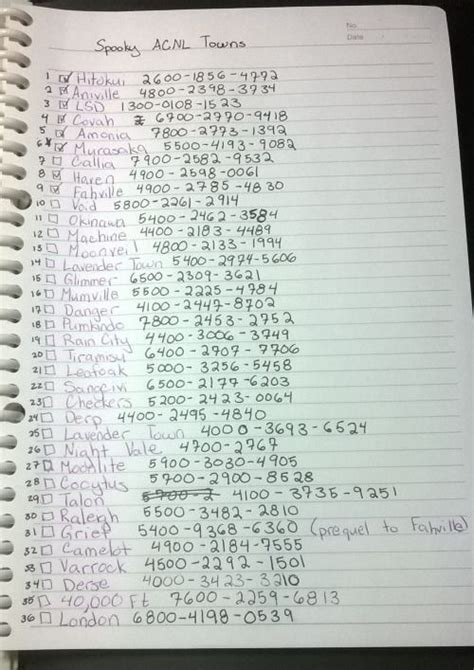 No.
Date
Spooky ACNL Towns
1 Hitokui 2600-1856-4772
2 Aniville 4800-2398-3734
3 LSD 1300-0108-1523
4 Covah 6700-2770-9418
5 Amonia 7800-2773-1392
6 Murasaka 5500-4193-9082
7 Callia 7900-2582-9532
8 Haven 4900-2598-0061
9 Fahville 4900-2785-4830
10 Void 5800-2261-2914
11 Okinawa 5400-2462-3584
12 Machine 4400-2183-4489
13 Moonveil 4800-2133-1994
14 Lavender Town 5400-2974-5606
15 Glimmer 6500-2309-3621
16 Mumville 5500-2225-4784
17 Danger 4100-2447-8702
18 Pumkindo 7800-2453-2752
19 Rain City 4400-3006-3749
20 Tiramisu 6400-2707-7706
21 Leafoak 5000-3256-5458
22 Sanocivi 6500-2177-6203
23 Checkers 5200-2423-0064
24 Derp 4400-2495-4840
25 Lavender Town 4000-3693-6524
26 Night Vale 4700-2767
27 Modelite 5900-3030-4905
28 Cocytus 5700-2900-8528
29 Talon 5700-2 4100-3735-9251
30 Raleigh 5500-3482-2810
31 Grief 5400-9368-6360 (prequel to Fahville)
32 Camelot 4900-2184-7555
33 Varrock 4500-2292-1501
34 Derse 4000-3423-3210
35 40,000 Ft 7600-2259-6813
36 London 6800-4198-0539